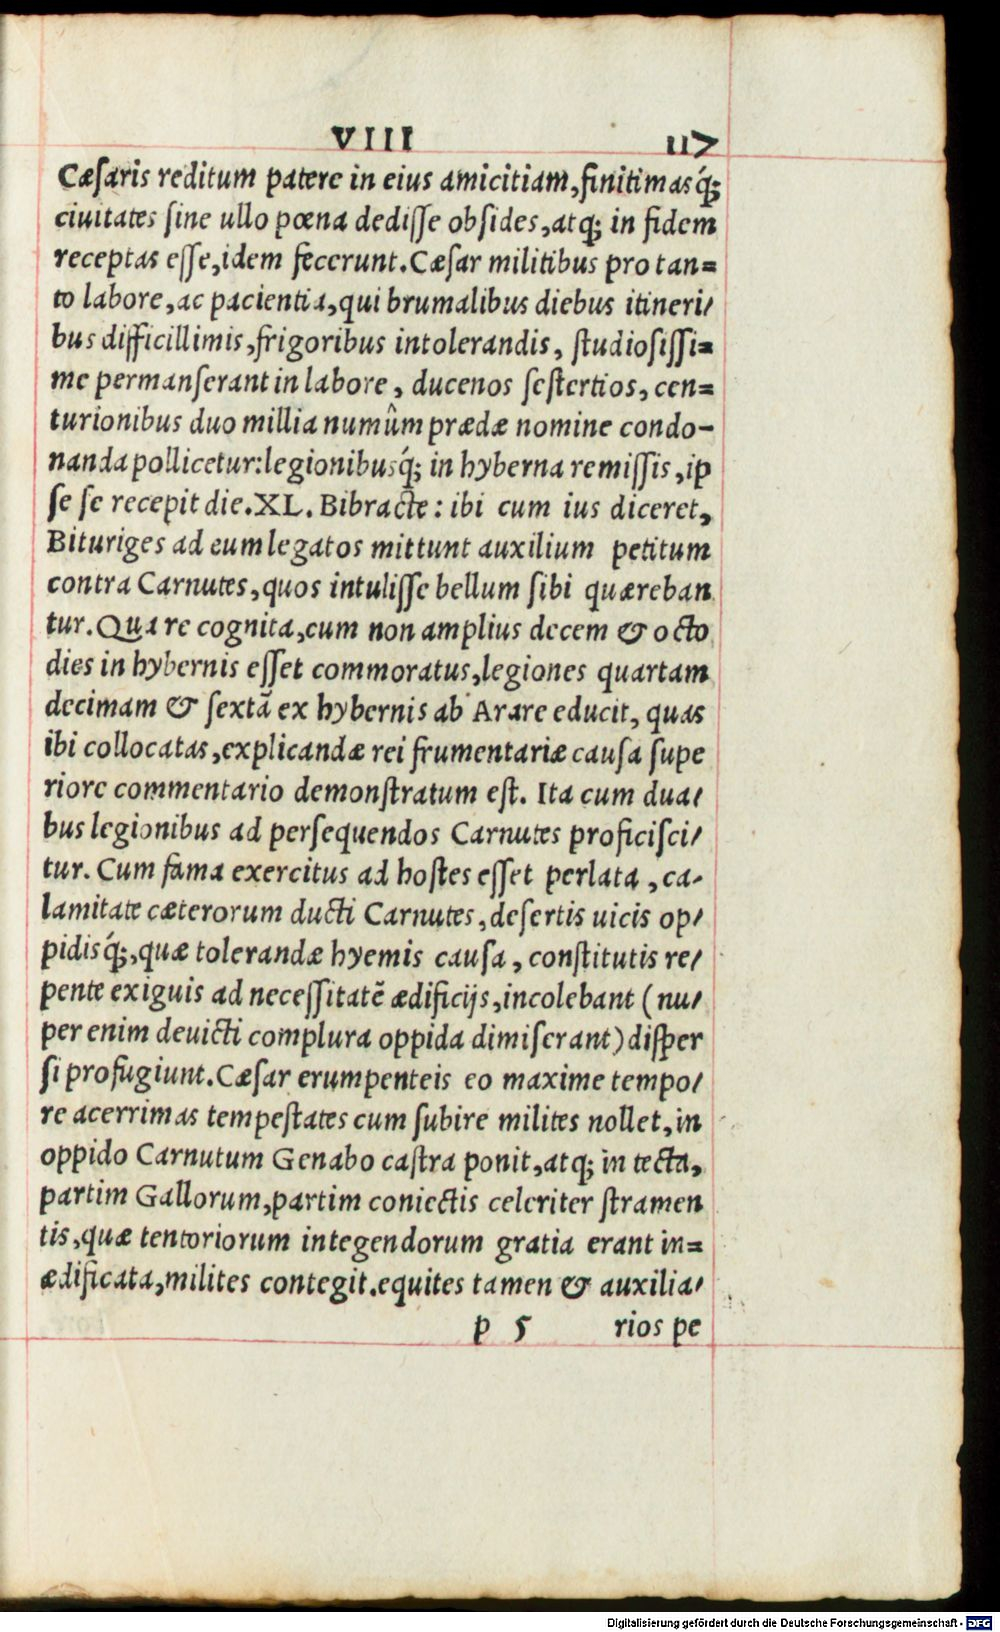 VIII 117
Cæſaris reditum patere in eius amicitiam, finitimasq́;
ciuitates ſine ullo pœna dediſſe obſides, atq; in fidem
receptas eſſe, idem fecerunt. Cæſar militibus pro tan=
to labore, ac pacientia, qui brumalibus diebus itineri/
bus difficillimis, frigoribus intolerandis, ſtudioſiſſi=
me permanſerant in labore, ducenos ſeſtertios, cen=
turionibus duo millia numûm prædæ nomine condo-
nanda pollicetur: legionibusq́; in hyberna remiſſis, ip
ſe ſe recepit die. XL. Bibracte: ibi cum ius diceret,
Bituriges ad eum legatos mittunt auxilium petitum
contra Carnutes, quos intuliſſe bellum ſibi quæreban
tur. Qua re cognita, cum non amplius decem & octo
dies in hybernis eſſet commoratus, legiones quartam
decimam & ſextã ex hybernis ab Arare educit, quas
ibi collocatas, explicandæ rei frumentariæ cauſa ſupe
riore commentario demonſtratum eſt. Ita cum dua/
bus legionibus ad perſequendos Carnutes proficiſci/
tur. Cum fama exercitus ad hoſtes eſſet perlata, ca-
lamitate cæterorum ducti Carnutes, deſertis uicis op/
pidisq́;, quæ tolerandæ hyemis cauſa, conſtitutis re/
pente exiguis ad neceſſitatẽ ædificijs, incolebant (nu/
per enim deuicti complura oppida dimiſerant) diſper
ſi profugiunt. Cæſar erumpenteis eo maxime tempo/
re acerrimas tempeſtates cum ſubire milites nollet, in
oppido Carnutum Genabo caſtra ponit, atq; in tecta,
partim Gallorum, partim coniectis celeriter ſtramen
tis, quæ tentoriorum integendorum gratia erant in=
ædificata, milites contegit. equites tamen & auxilia/
p 5 rios pe
Digitalisierung gefördert durch die Deutsche Forschungsgemeinschaft - DFG